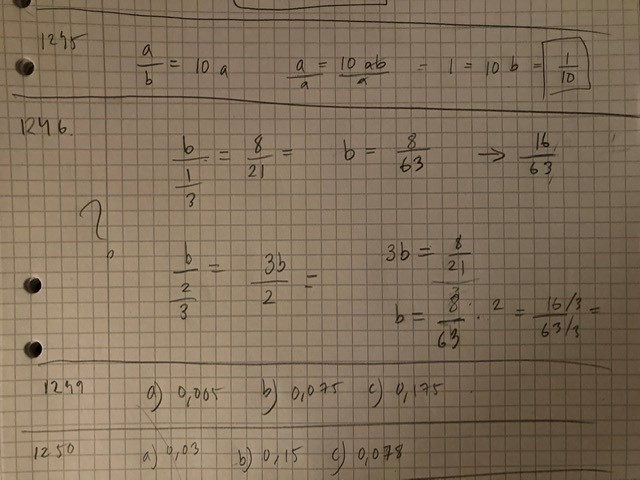 1245 a/b = 10 a a/a = 10 ab/a = 1 = 10 b = 1/10
1246. b/(1/3) = 8/21 = b = 8/63 → 16/63
b/(2/3) = 3b/2 = 3b = 8/21
b = 8/63 · 2 = 16/3 / 63/3 =
1249 a) 0,005 b) 0,075 c) 0,175
1250 a) 0,03 b) 0,15 c) 0,078